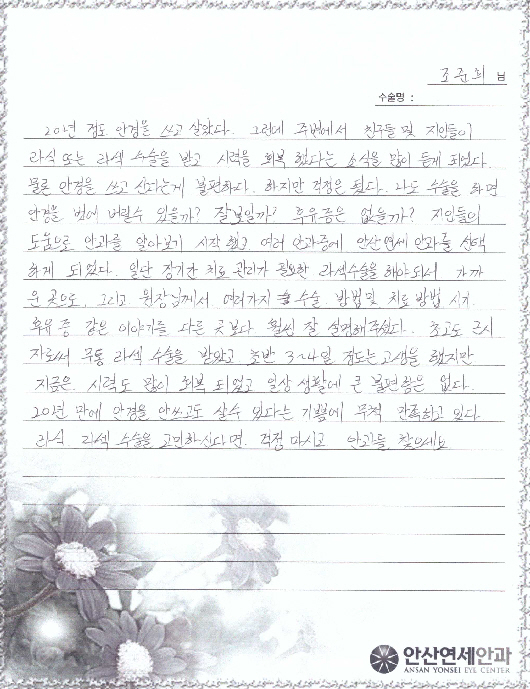 조준희 님
수술명 :
20년 정도 안경을 쓰고 살았다. 그런데 주변에서 친구들 및 지인들이
라식 또는 라섹 수술을 받고 시력을 회복 했다는 소식을 많이 듣게 되었다.
물론 안경을 쓰고 산다는게 불편하다. 하지만 걱정은 됬다. 나도 수술을 하면
안경을 벗어 버릴수 있을까? 잘보일까? 후유증은 없을까? 지인들의
도움으로 안과를 알아보기 시작 했고 여러 안과중에 안산연세 안과를 선택
하게 되었다. 일단 장기간 치료 관리가 필요한 라섹수술을 해야되서 가까
운 곳으로, 그리고 원장님께서 여러가지 수술 방법 및 치료 방법 시기
후유증 같은 이야기를 다른 곳보다 훨씬 잘 설명해주셨다. 초고도 근시
자로써 무통 라섹 수술을 받았고 초반 3~4일 정도는 고생을 했지만
지금은 시력도 많이 회복 되었고 일상 생활에 큰 불편함은 없다.
20년 만에 안경을 안쓰고도 살수 있다는 기쁨에 무척 만족하고 있다.
라식, 라섹 수술을 고민하신다면. 걱정 마시고 안과를 찾으세요
안산연세안과
ANSAN YONSEI EYE CENTER